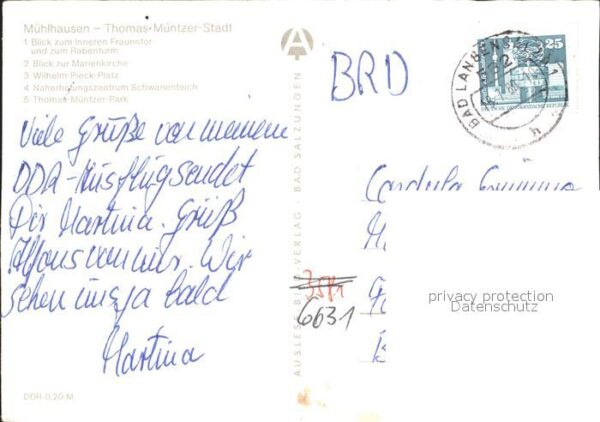 Mühlhausen – Thomas-Müntzer-Stadt
1 Blick zum Inneren Frauentor
und zum Rabenturm
2 Blick zur Marienkirche
3 Wilhelm-Pieck-Platz
4 Naherholungszentrum Schwanenteich
5 Thomas-Müntzer-Park
Viele Grüße von meinem
DDR-Ausflug sendet
Dir Martina. Grüß
Alfons von mir. Wir
sehen uns ja bald
Martina
DDR 0,20 M
AUSLESE-BILD-VERLAG · BAD SALZUNGEN
A
BRD
25
DEUTSCHE DEMOKRATISCHE REPUBLIK
BAD LANGENSALZA 1
h
Cordula
3571
6631
privacy protection
Datenschutz